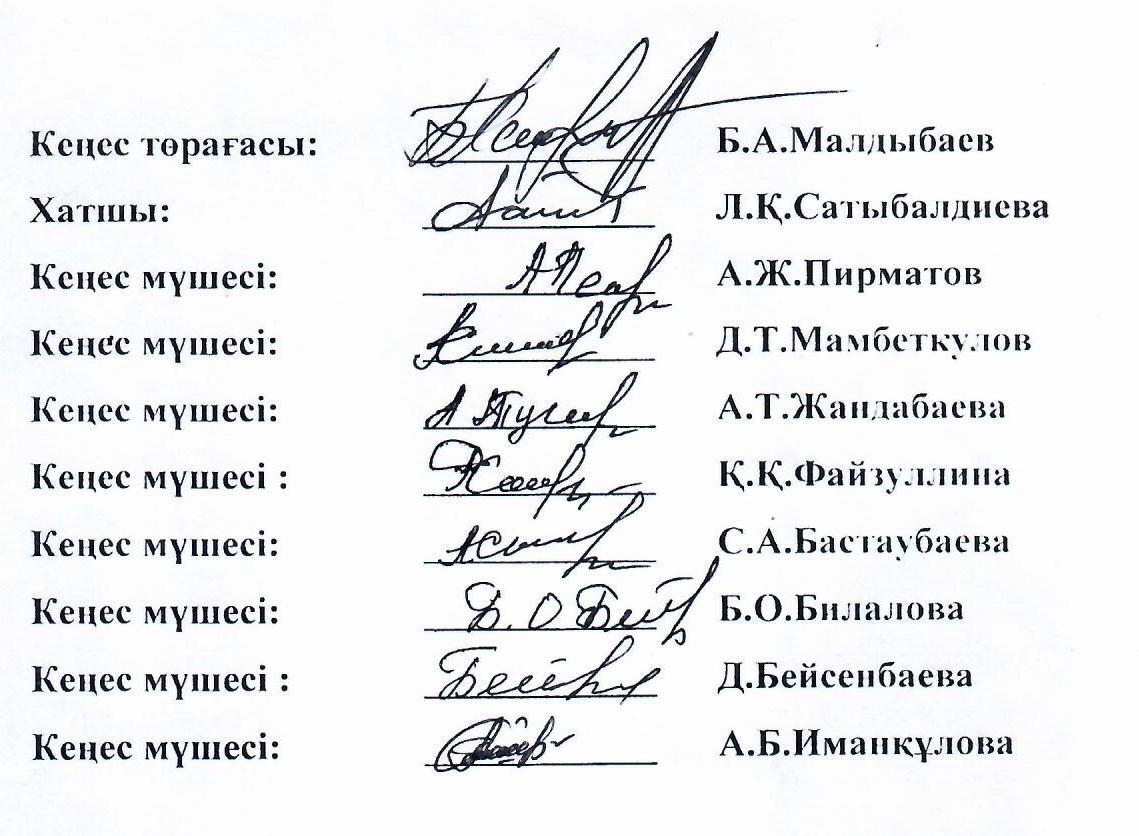 Кеңес төрағасы: Б.А.Малдыбаев
Хатшы: Л.Қ.Сатыбалдиева
Кеңес мүшесі: А.Ж.Пирматов
Кеңес мүшесі: Д.Т.Мамбеткулов
Кеңес мүшесі: А.Т.Жандабаева
Кеңес мүшесі : Қ.Қ.Файзуллина
Кеңес мүшесі: С.А.Бастаубаева
Кеңес мүшесі: Б.О.Билалова
Кеңес мүшесі : Д.Бейсенбаева
Кеңес мүшесі: А.Б.Иманқұлова